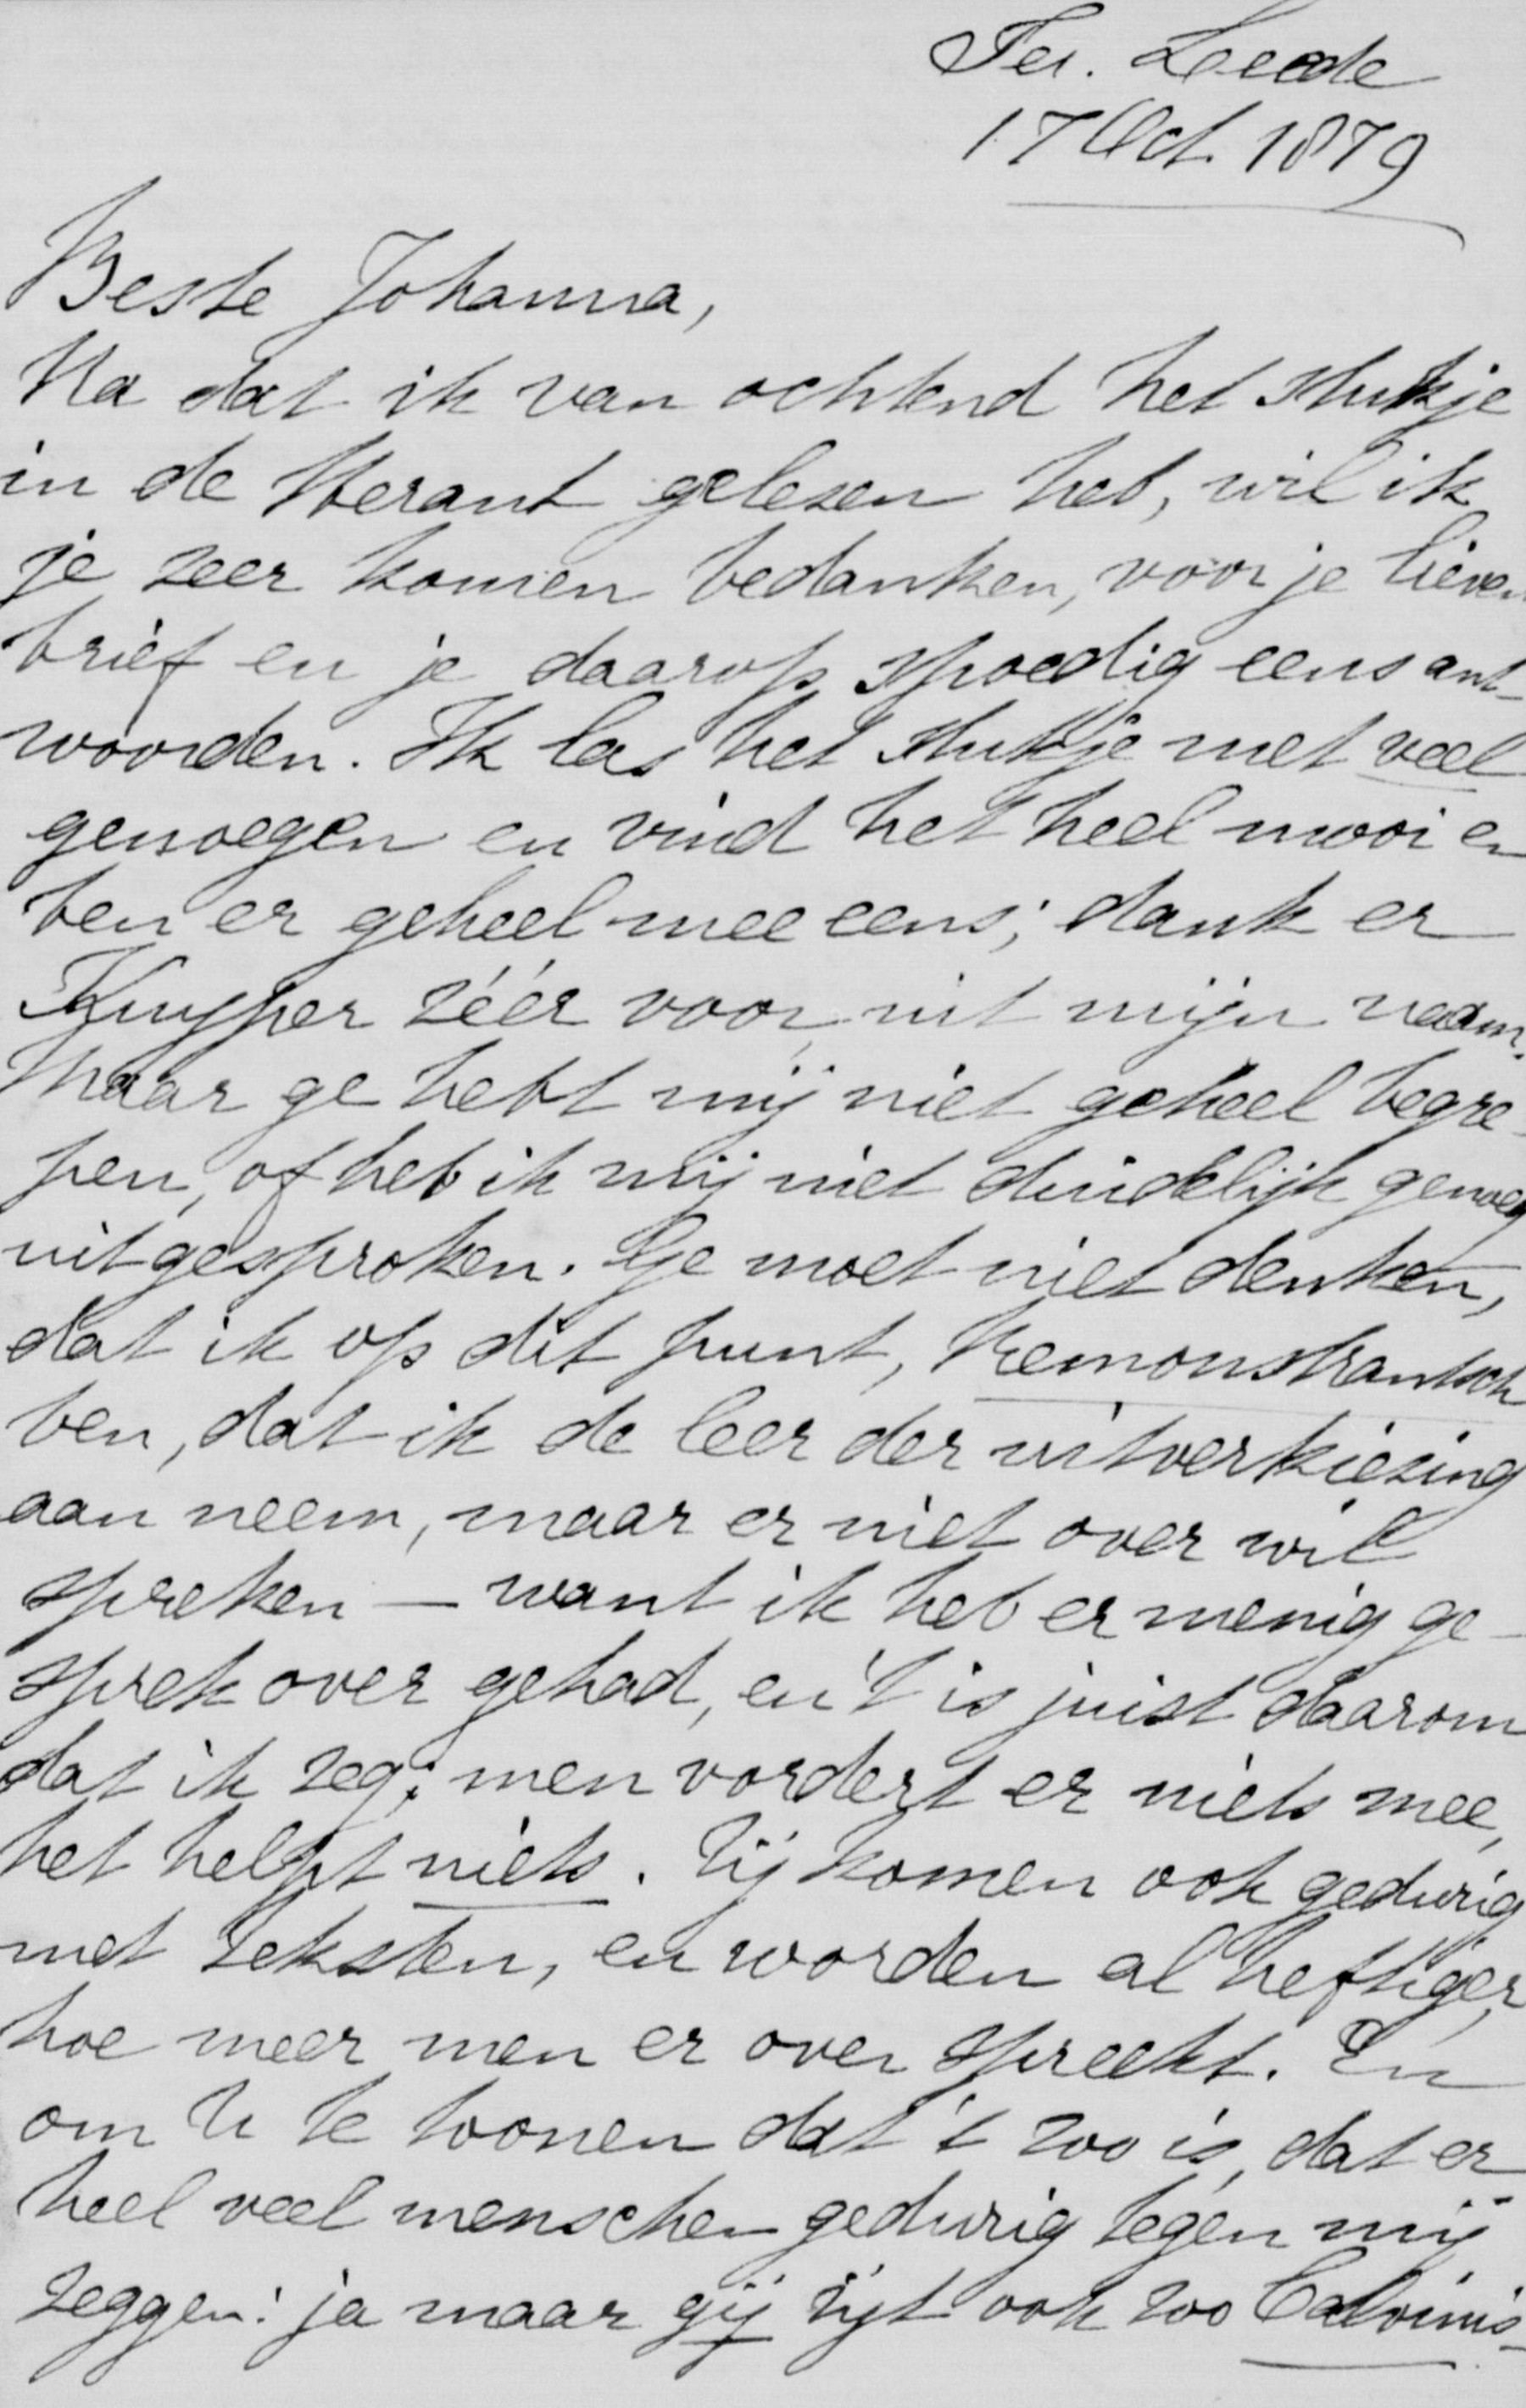 Ter. Leede
17 Oct. 1879
Beste Johanna,
Na dat ik van ochtend het stukje
in de Herant gelezen heb, wil ik
je zeer komen bedanken, voor je lieven
brief en je daarop spoedig eens ant-
woorden. Ik las het stukje met veel
genoegen en vind het heel mooi en
ben er geheel mee eens; dank er
Kuyper zéér voor, uit mijn naam.
Maar ge hebt mij niet geheel begre-
pen, of heb ik mij niet duidelijk genoeg
uitgesproken. Ge moet niet denken,
dat ik op dit punt, Remonstrantsch
ben, dat ik de leer der uitverkiezing
aan neem, maar er niet over wil
spreken — want ik heb er menig ge-
sprek over gehad, en 't is juist daarom
dat ik zeg; men vordert er niets mee,
het helpt niets. Zij komen ook gedurig
met teksten, en worden al heftiger,
hoe meer men er over spreekt. En
om U te toonen dat 't zoo is, dat er
heel veel menschen gedurig tegen mij
zeggen: ja maar gij zijt ook zoo Calvinis-